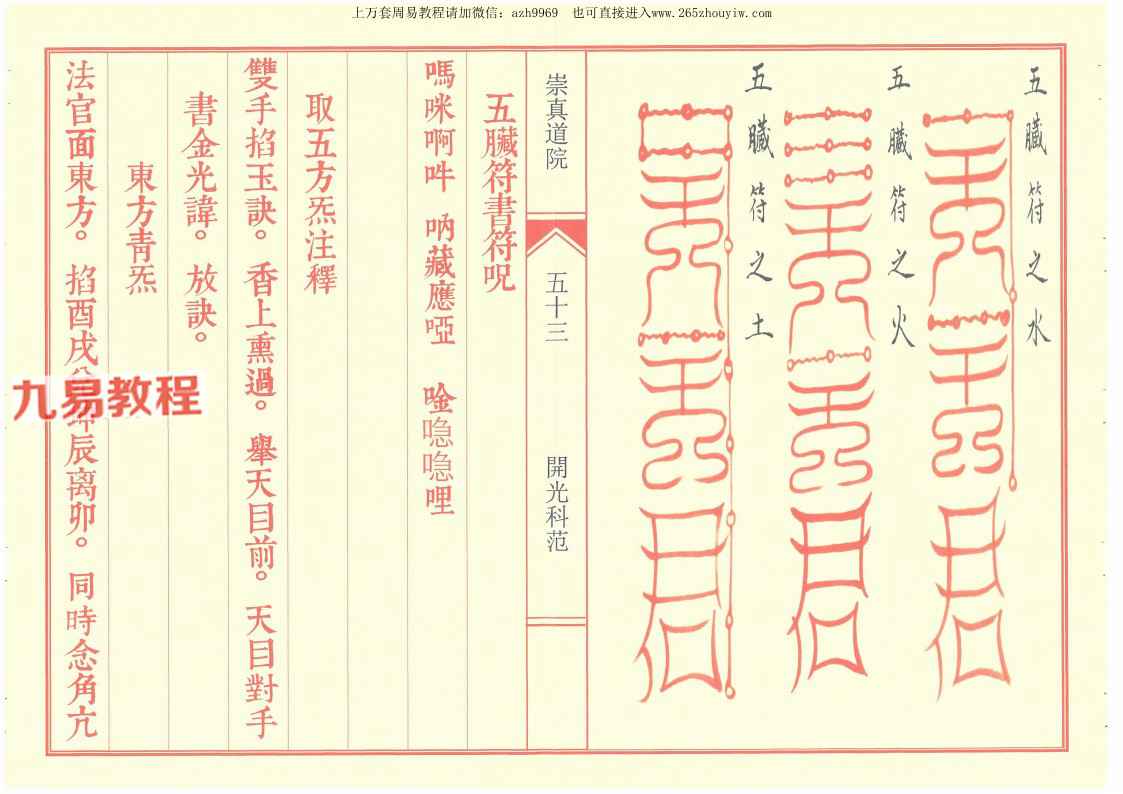 上万套周易教程请加微信：azh9969　也可直接进入www.265zhouyiw.com
五臟符之水
五臟符之火
五臟符之土
崇真道院
五十三
開光科范
五臟符書符呪
嗎咪啊吽　吶藏應啞　唫
哩
取五方炁注釋
雙手掐玉訣。香上熏過。舉天目前。天目對手
書金光諱。放訣。
東方靑炁
法官面東方。掐酉戌
辰离卯。同時念角亢
九易教程